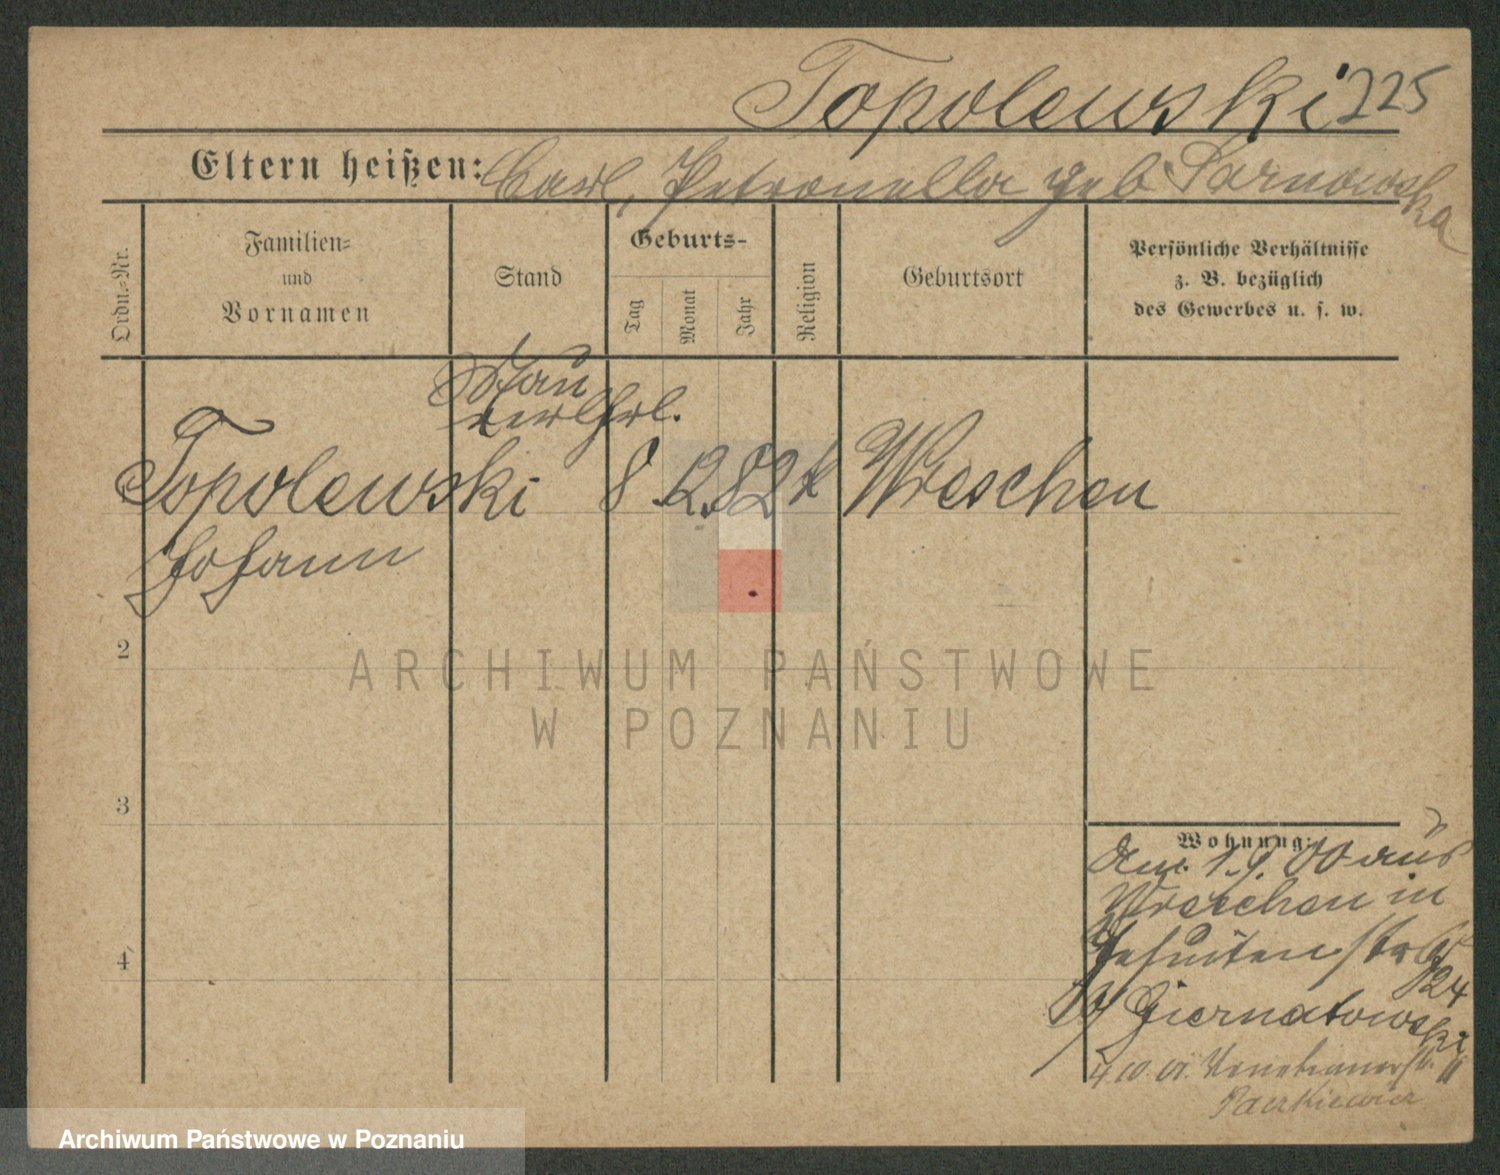 Topolewski 225
Eltern heißen: Carl, Petronella geb Sarnowska
Ordn.-Nr.
Familien-
und
Vornamen
Stand
Geburts-
Tag
Monat
Jahr
Religion
Geburtsort
Persönliche Verhältnisse
z. B. bezüglich
des Gewerbes u. s. w.
Topolewski 8. 2. 82 k Wreschen
Johann
2
3
4
Wohnung:
den 1. 9. 00 aus
Wreschen in
Jesuitenstr
Giernatowski
4.10.01. Venetianerstr.
ARCHIWUM PAŃSTWOWE
W POZNANIU
Archiwum Państwowe w Poznaniu